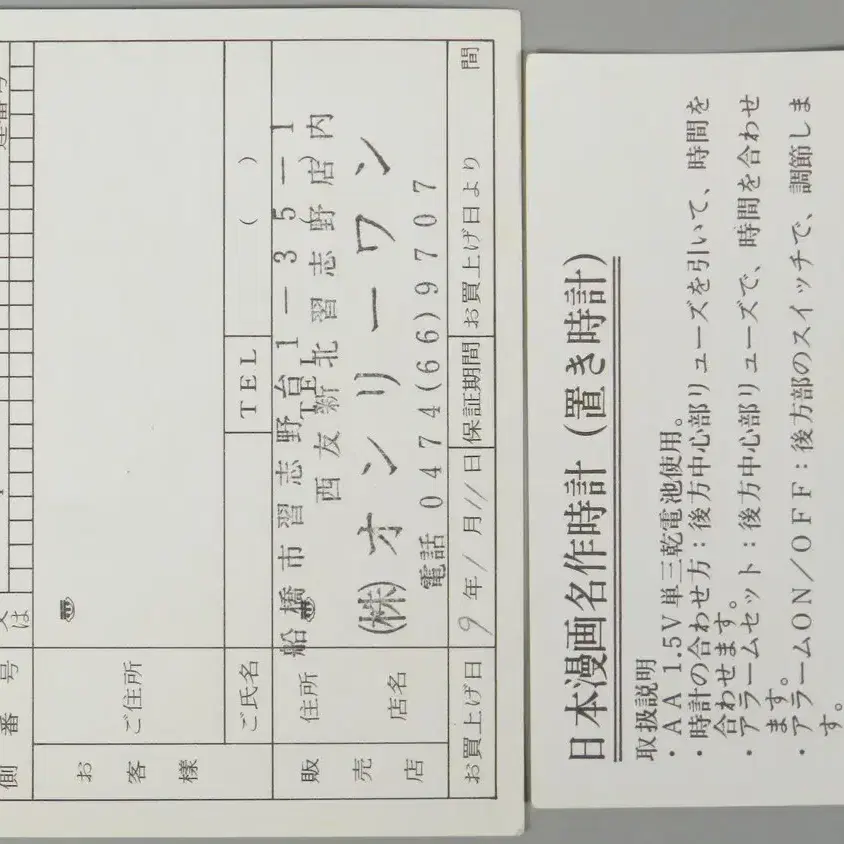 側番号
又は
連番号
お客様
ご住所
〒
ご氏名
TEL
( )
販売店
住所
〒
船橋市習志野台1-35-1
TEL
西友新北習志野店内
店名
㈱オンリーワン
電話0474(66)9707
お買上げ日
9年1月11日
保証期間
お買上げ日より
間
日本漫画名作時計(置き時計)
取扱説明
・AA 1.5V単三乾電池使用。
・時計の合わせ方:後方中心部リューズを引いて、時間を
合わせます。
・アラームセット:後方中心部リューズで、時間を合わせ
ます。
・アラームON/OFF:後方部のスイッチで、調節しま
す。